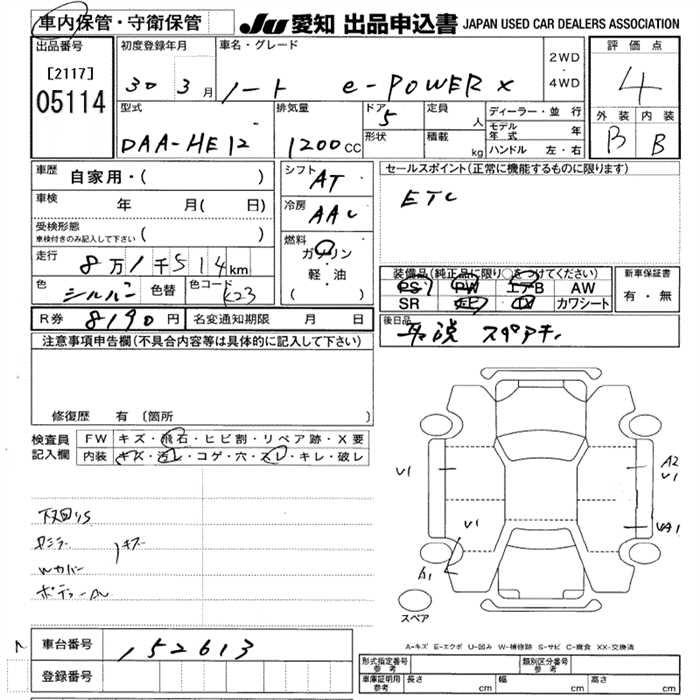 車内保管・守衛保管
JU 愛知 出品申込書 JAPAN USED CAR DEALERS ASSOCIATION
出品番号
[2117]
05114
初度登録年月
30 3月
車名・グレード
ノート e-POWER X
2WD
・
4WD
評価点
4
外装 内装
B B
型式
DAA-HE12
排気量
1200CC
ドア
5
形状
定員
人
積載
kg
ディーラー・並行
モデル年式 年
ハンドル 左・右
車歴
自家用・( )
車検
年 月( 日)
受検形態
車検付きのみ記入して下さい ( )
走行
8万1千514km
色
シルバー
色替
色コード
K23
シフト
AT
冷房
AAC
燃料
ガソリン
・
軽・油
( )
セールスポイント(正常に機能するものに限ります)
ETC
装備品(純正品に限り○をつけてください)
PS PW エアB AW
SR カワシート
新車保証書
有・無
R券 8190円 名変通知期限 月 日
後日品
注意事項申告欄(不具合内容等は具体的に記入して下さい)
修復歴 有 (箇所 )
検査員
記入欄
FW キズ・飛石・ヒビ割・リペア跡・X要
内装 キズ・汚レ・コゲ・穴・スレ・キレ・破レ
キズ
Wカバー
U1
A2
U1
U1
A1
スペア
A-キズ E-エクボ U-凹み W-補修跡 S-サビ C-腐食 XX-交換済
車台番号 152613
登録番号
形式指定番号
参考
類別区分番号
参考
車庫証明用
参考
長さ cm 幅 cm 高さ cm